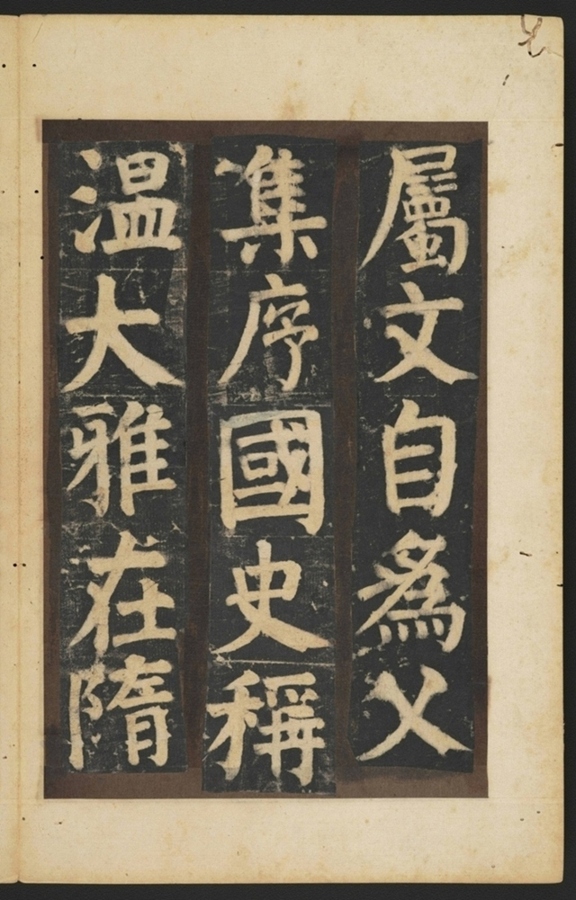 屬文自為父
集序國史稱
温大雅在隋